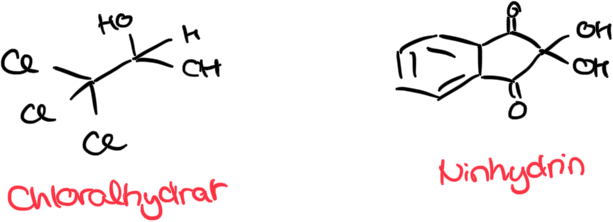 HO
H
Cl
CH
Cl
Cl
Chloralhydrat
O
OH
OH
O
Ninhydrin